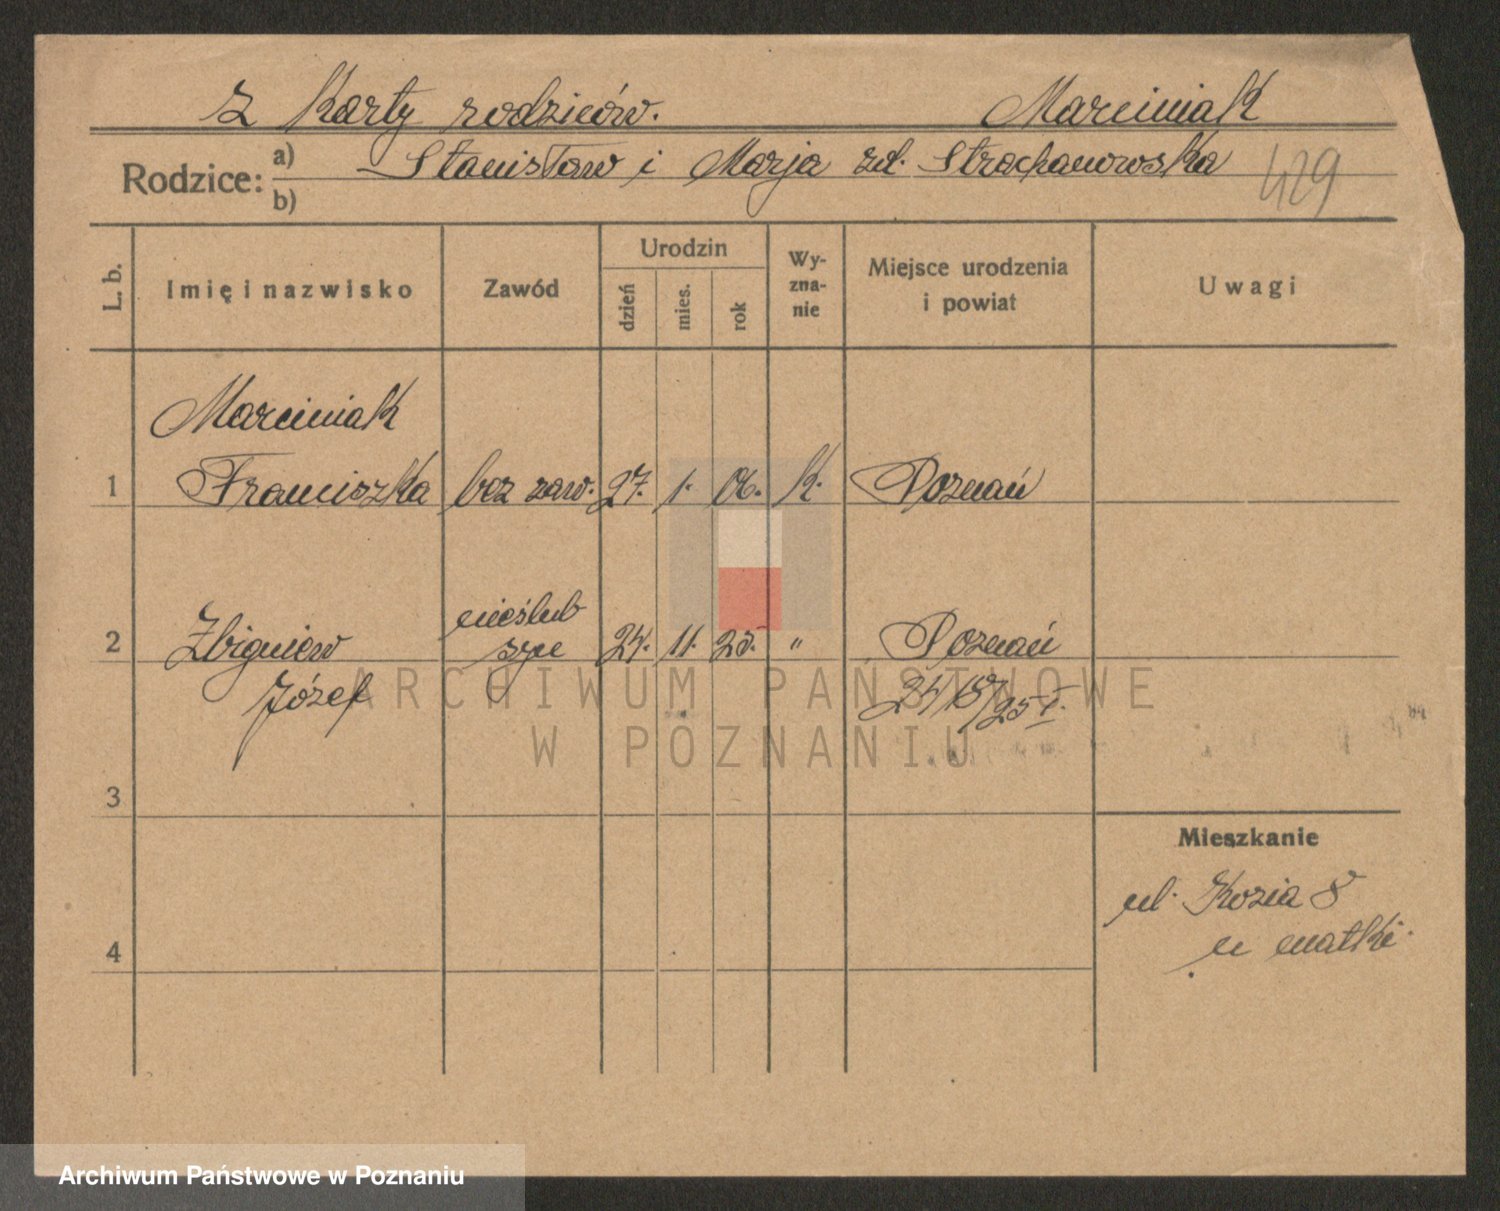 z Karty rodziców. Marciniak
Rodzice: a) Stanisław i Marja zd. Strachanowska 429
b)
L. b. Imię i nazwisko Zawód Urodzin dzień mies. rok Wy-zna-nie Miejsce urodzenia i powiat Uwagi
Marciniak
1 Franciszka bez zaw. 27. 1. 06. k. Poznań
nieślub
2 Zbigniew syn 24. 11. 25. " Poznań
Józef
3
Mieszkanie
ul. Kozia 8
4 u matki.
ARCHIWUM PAŃSTWOWE
W POZNANIU
Archiwum Państwowe w Poznaniu